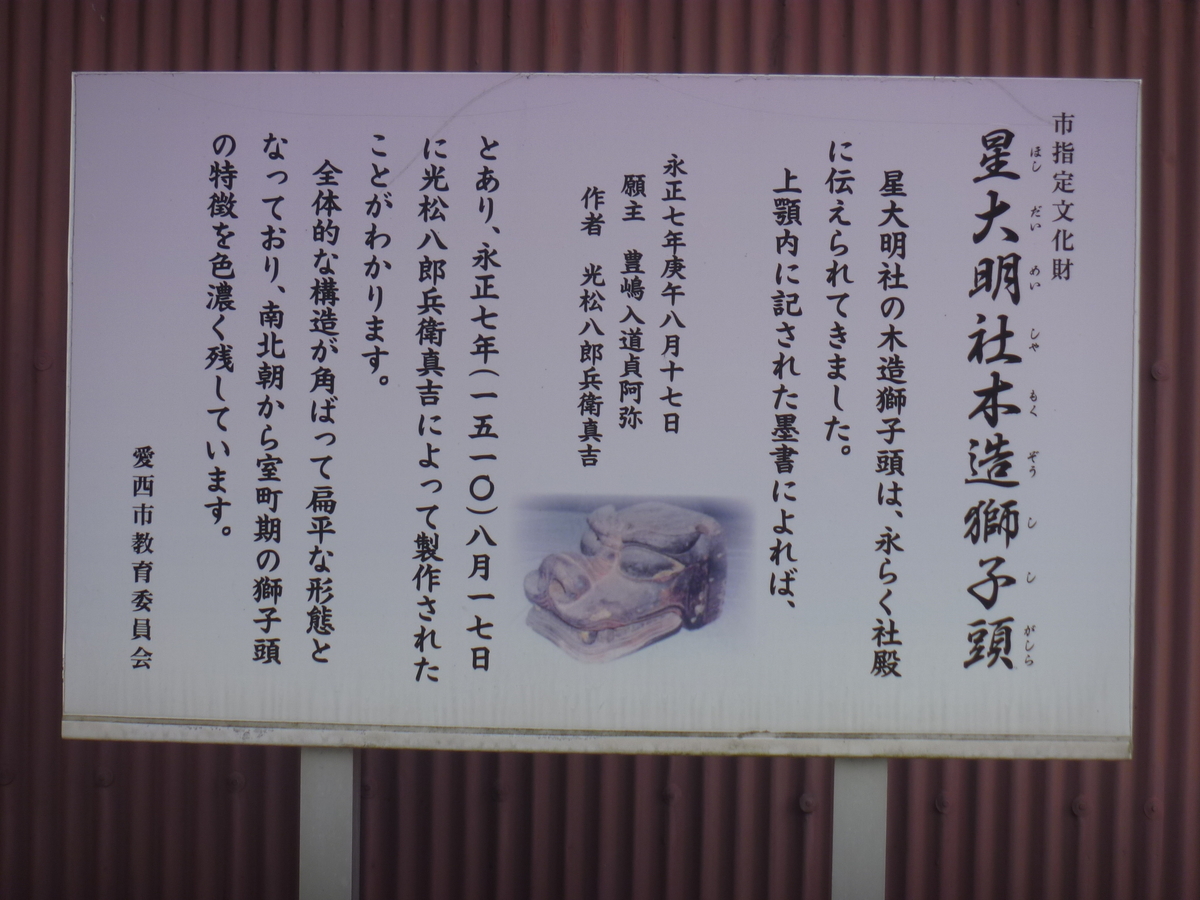 市指定文化財
星大明社木造獅子頭
ほしだいめいしゃもくぞうししがしら
星大明社の木造獅子頭は、永らく社殿
に伝えられてきました。
上顎内に記された墨書によれば、
永正七年庚午八月十七日
願主 豊嶋入道貞阿弥
作者 光松八郎兵衛真吉
とあり、永正七年(一五一〇)八月一七日
に光松八郎兵衛真吉によって製作された
ことがわかります。
全体的な構造が角ばって扁平な形態と
なっており、南北朝から室町期の獅子頭
の特徴を色濃く残しています。
愛西市教育委員会